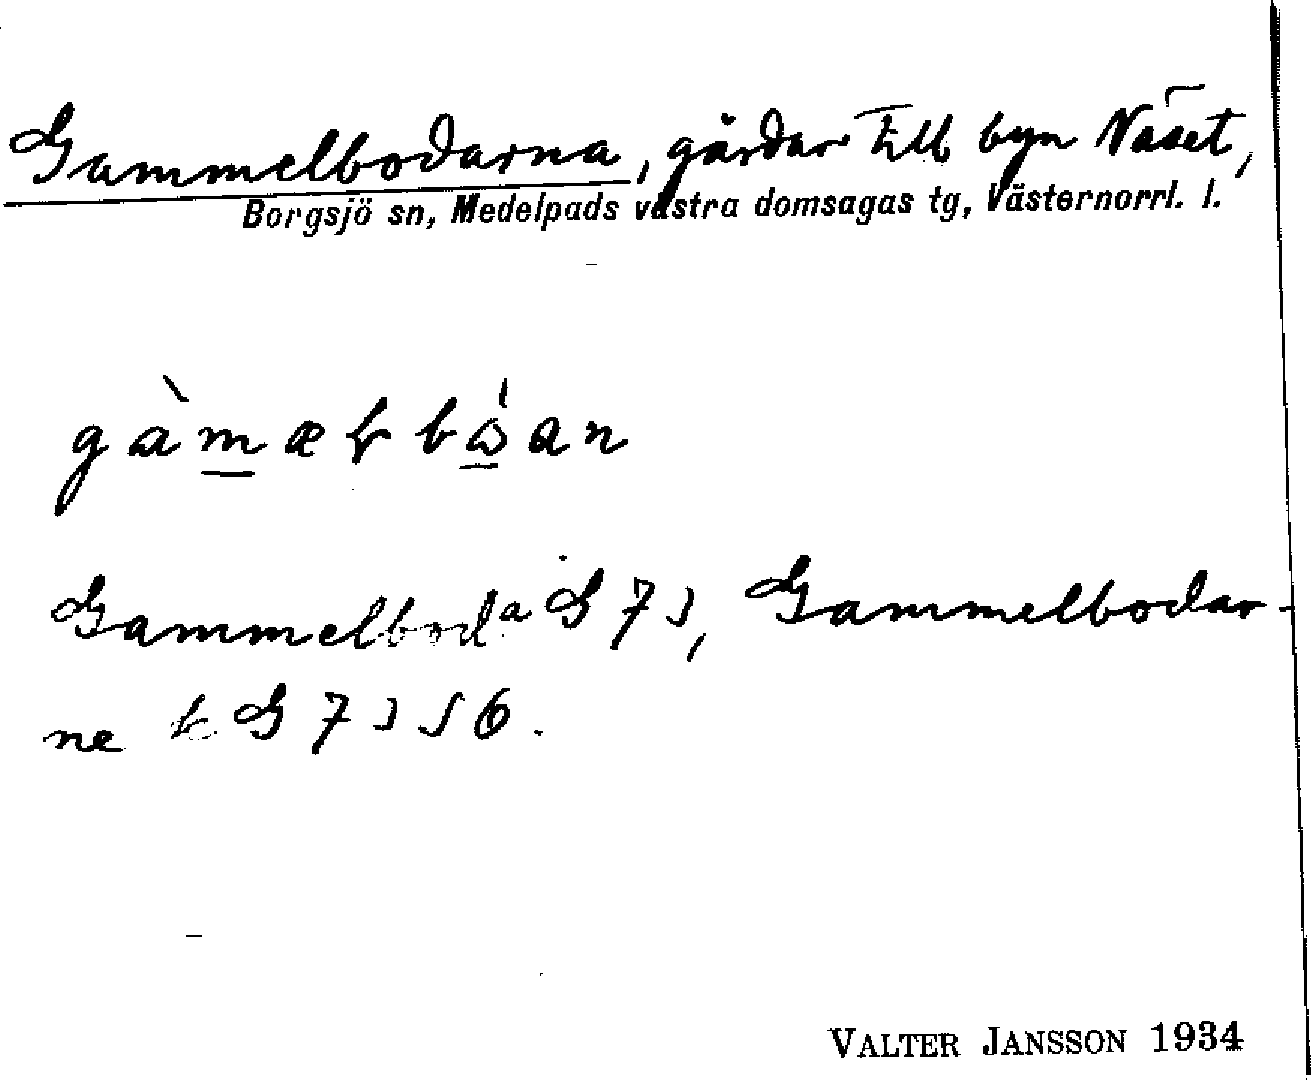 Gammelbodarna, gårdar till byn Näset,
Borgsjö sn, Medelpads västra domsagas tg, Västernorrl. l.
Gammelboda G 73, Gammelbodar-
ne G 73 56.
VALTER JANSSON 1934